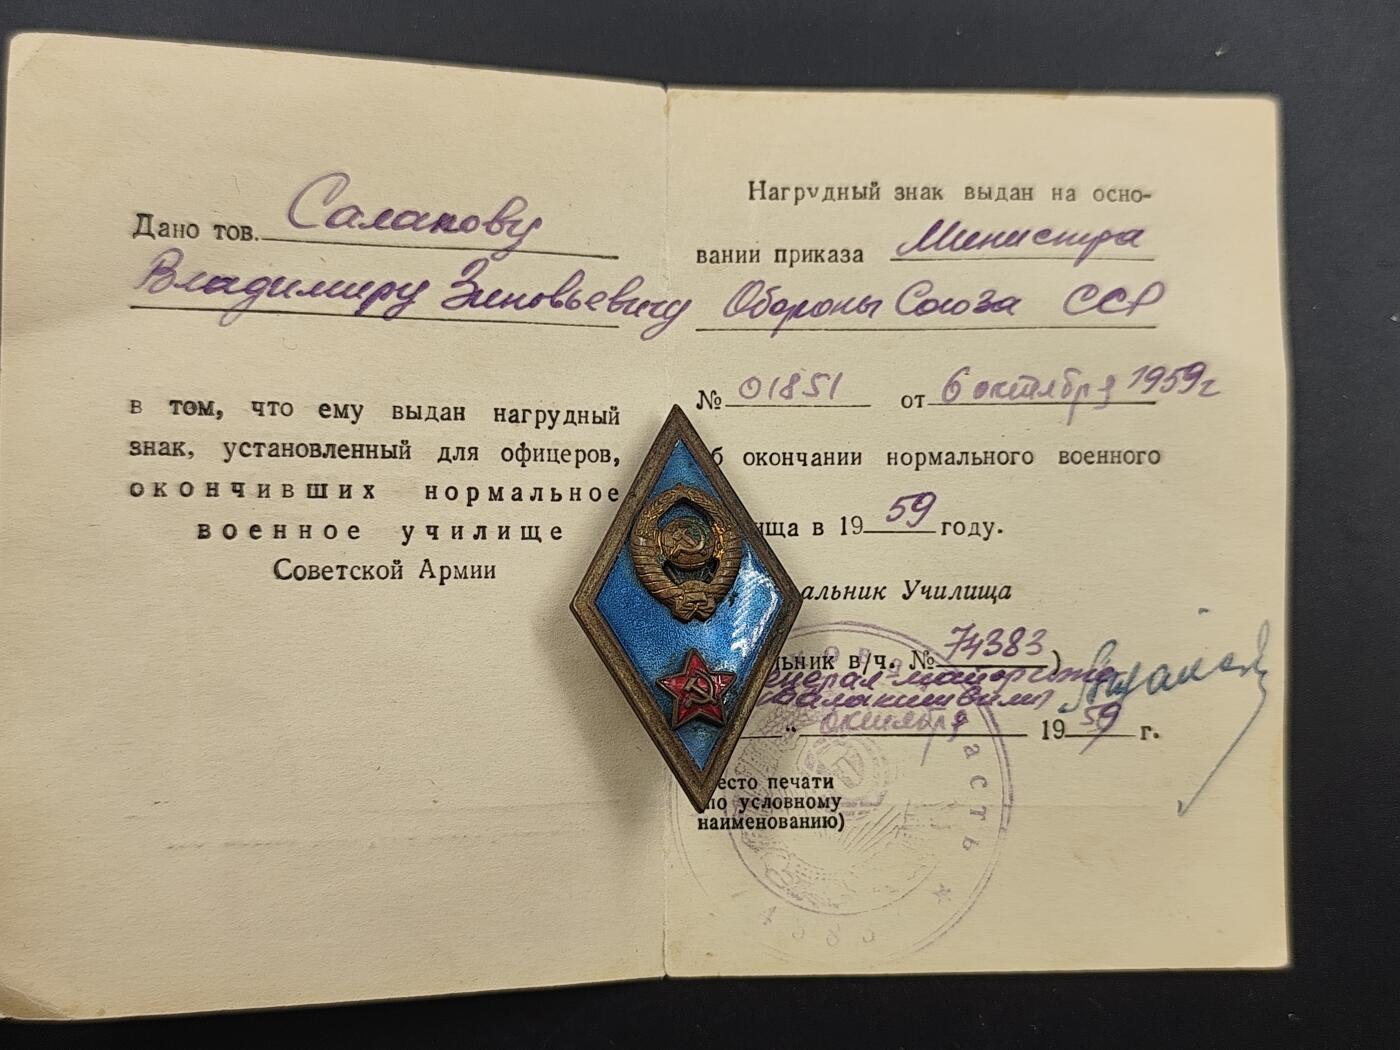 Дано тов. Салакову
Владимиру Зиновьевичу
в том, что ему выдан нагрудный
знак, установленный для офицеров,
окончивших нормальное
военное училище
Советской Армии
Нагрудный знак выдан на осно-
вании приказа Министра
Обороны Союза ССР
№ 01851 от 6 октября 1959 г
б окончании нормального военного
ища в 19 59 году.
альник Училища
льник в/ч. № 74383)
енерал-майор
" октября 19 59 г.
есто печати
по условному
наименованию)
асть